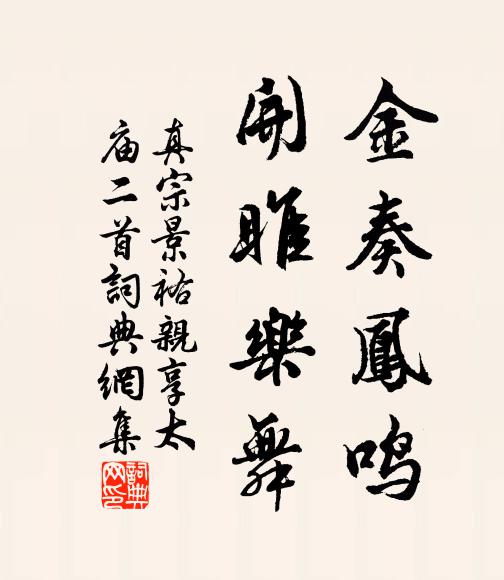 金奏鳳鳴
開睢樂舞
真宗景祐親享太
廟二首詞典網集
詞典網印